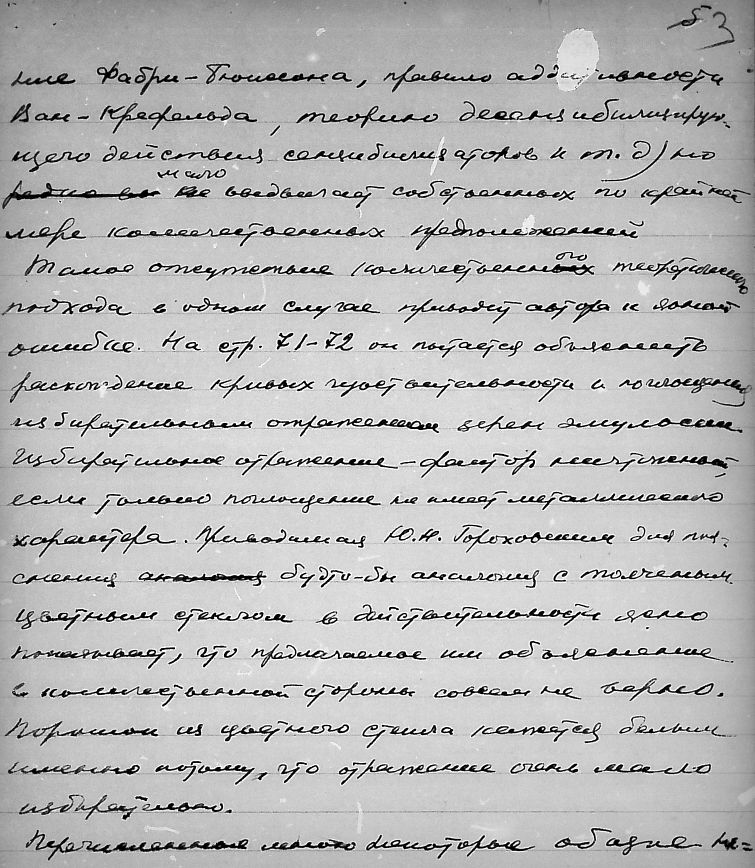 53
ние Фабри-Бюиссона, правило аддитивности
Ван-Крефельда, теорию десенцибилизирую-
щего действия сенцибилизаторов и т.д) но
редко вы мало
не выдвигает собственных по крайней
мере количественных предположений
Такое отсутствие количественного теоретического
подхода в одном случае приводит автора к явной
ошибке. На стр. 71-72 он пытается объяснить
расхождение кривых чувствительности и поглощения
избирательным отражением зерен эмульсии.
Избирательное отражение – фактор ничтожный,
если только поглощение не имеет металлического
характера. Приводимая Ю.Н. Гороховским для поя-
снения аналогия будто-бы аналогия с толченым
цветным стеклом в действительности ясно
показывает, что предлагаемое им объяснение
с количественной стороны совсем не верно.
Порошок из цветного стекла кажется белым
именно потому, что отражение очень мало
избирательно.
Перечисленные мною некоторые общие не-